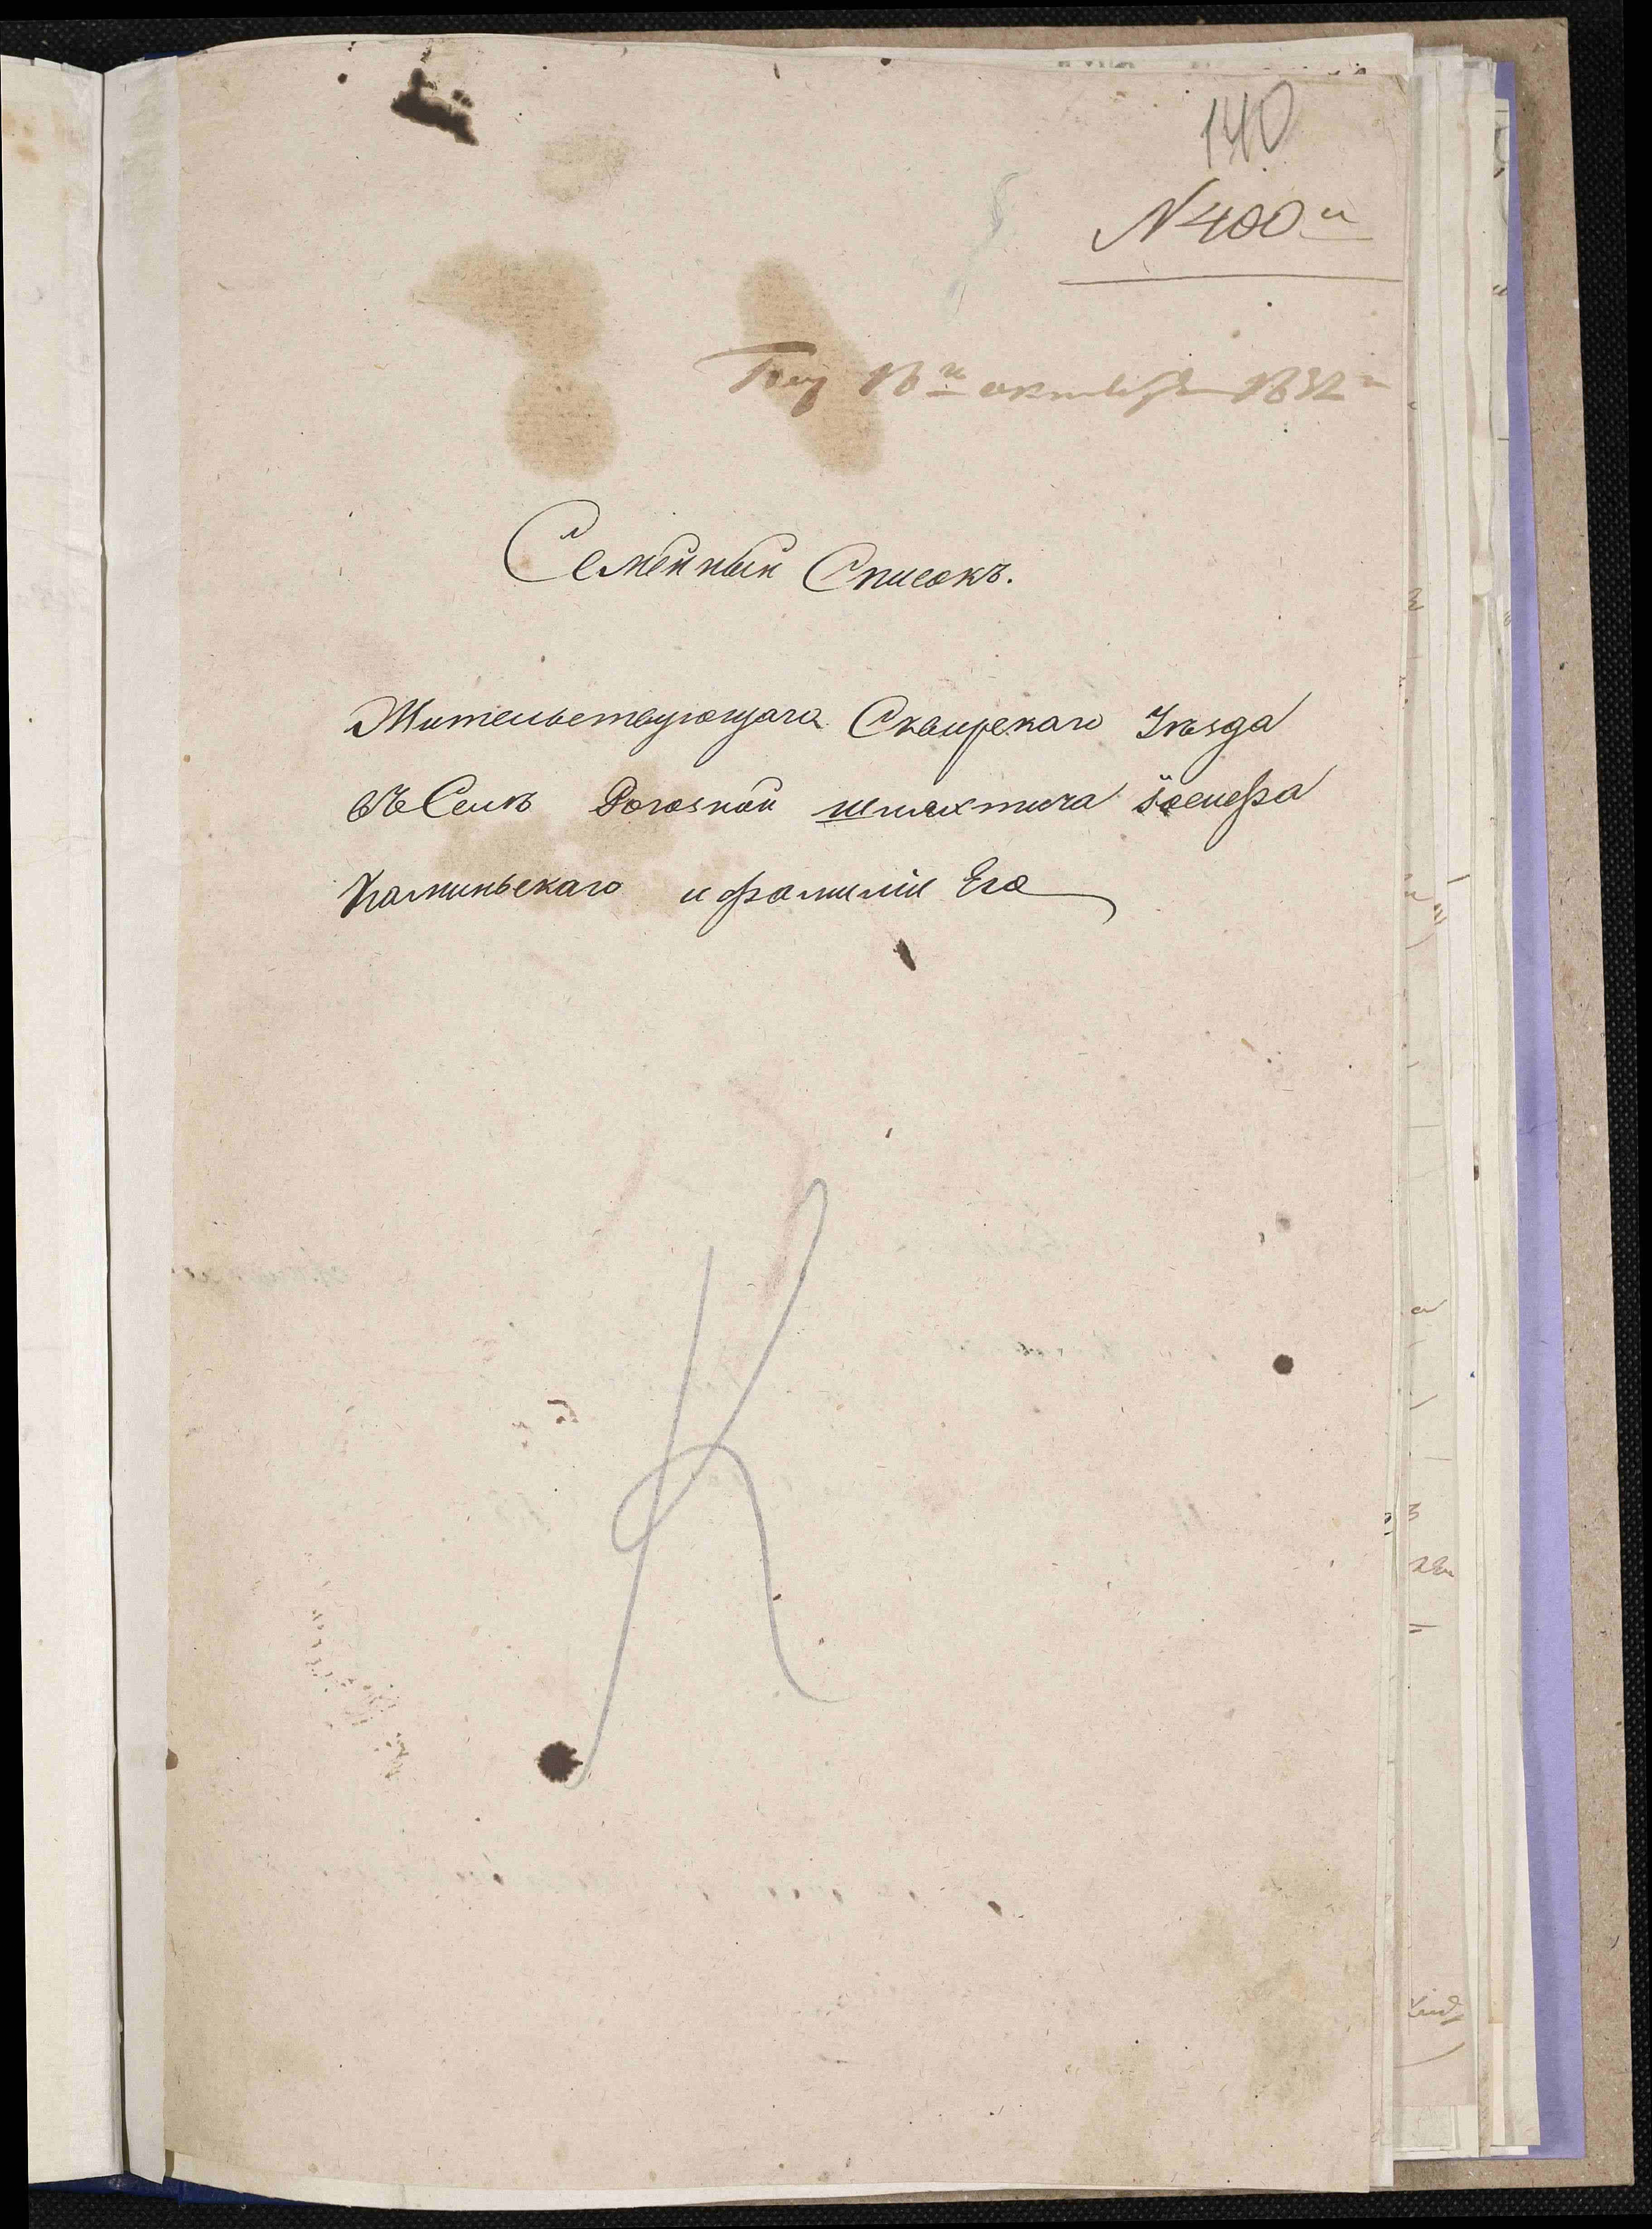 140
№ 400й
18й октября 1832
Семейный Списокъ.
Жительствующаго Сквирскаго Уѣзда
въ Селѣ Рогозной шляхтича Іосифа
Каминьскаго и фамиліи Его
К